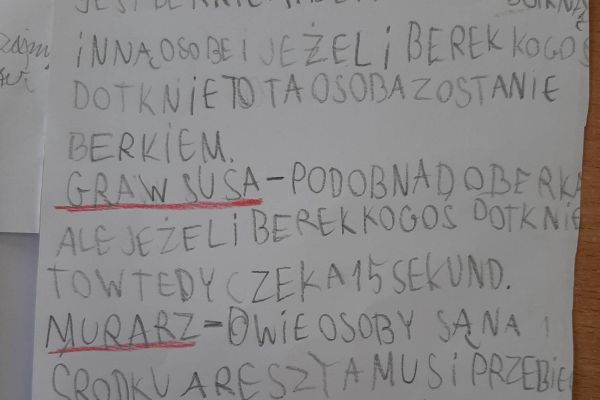 JEST BERKIEM
INNĄ OSOBE I JEŻELI BEREK KOGOŚ
DOTKNIE TO TA OSOBA ZOSTANIE
BERKIEM.
GRA W SUSA - PODOBNA DO BERKA
ALE JEŻELI BEREK KOGOŚ DOTKNIE
TO WTEDY CZEKA 15 SEKUND.
MURARZ - DWIE OSOBY SĄ NA
ŚRODKU A RESZTA MUSI PRZEBIEC